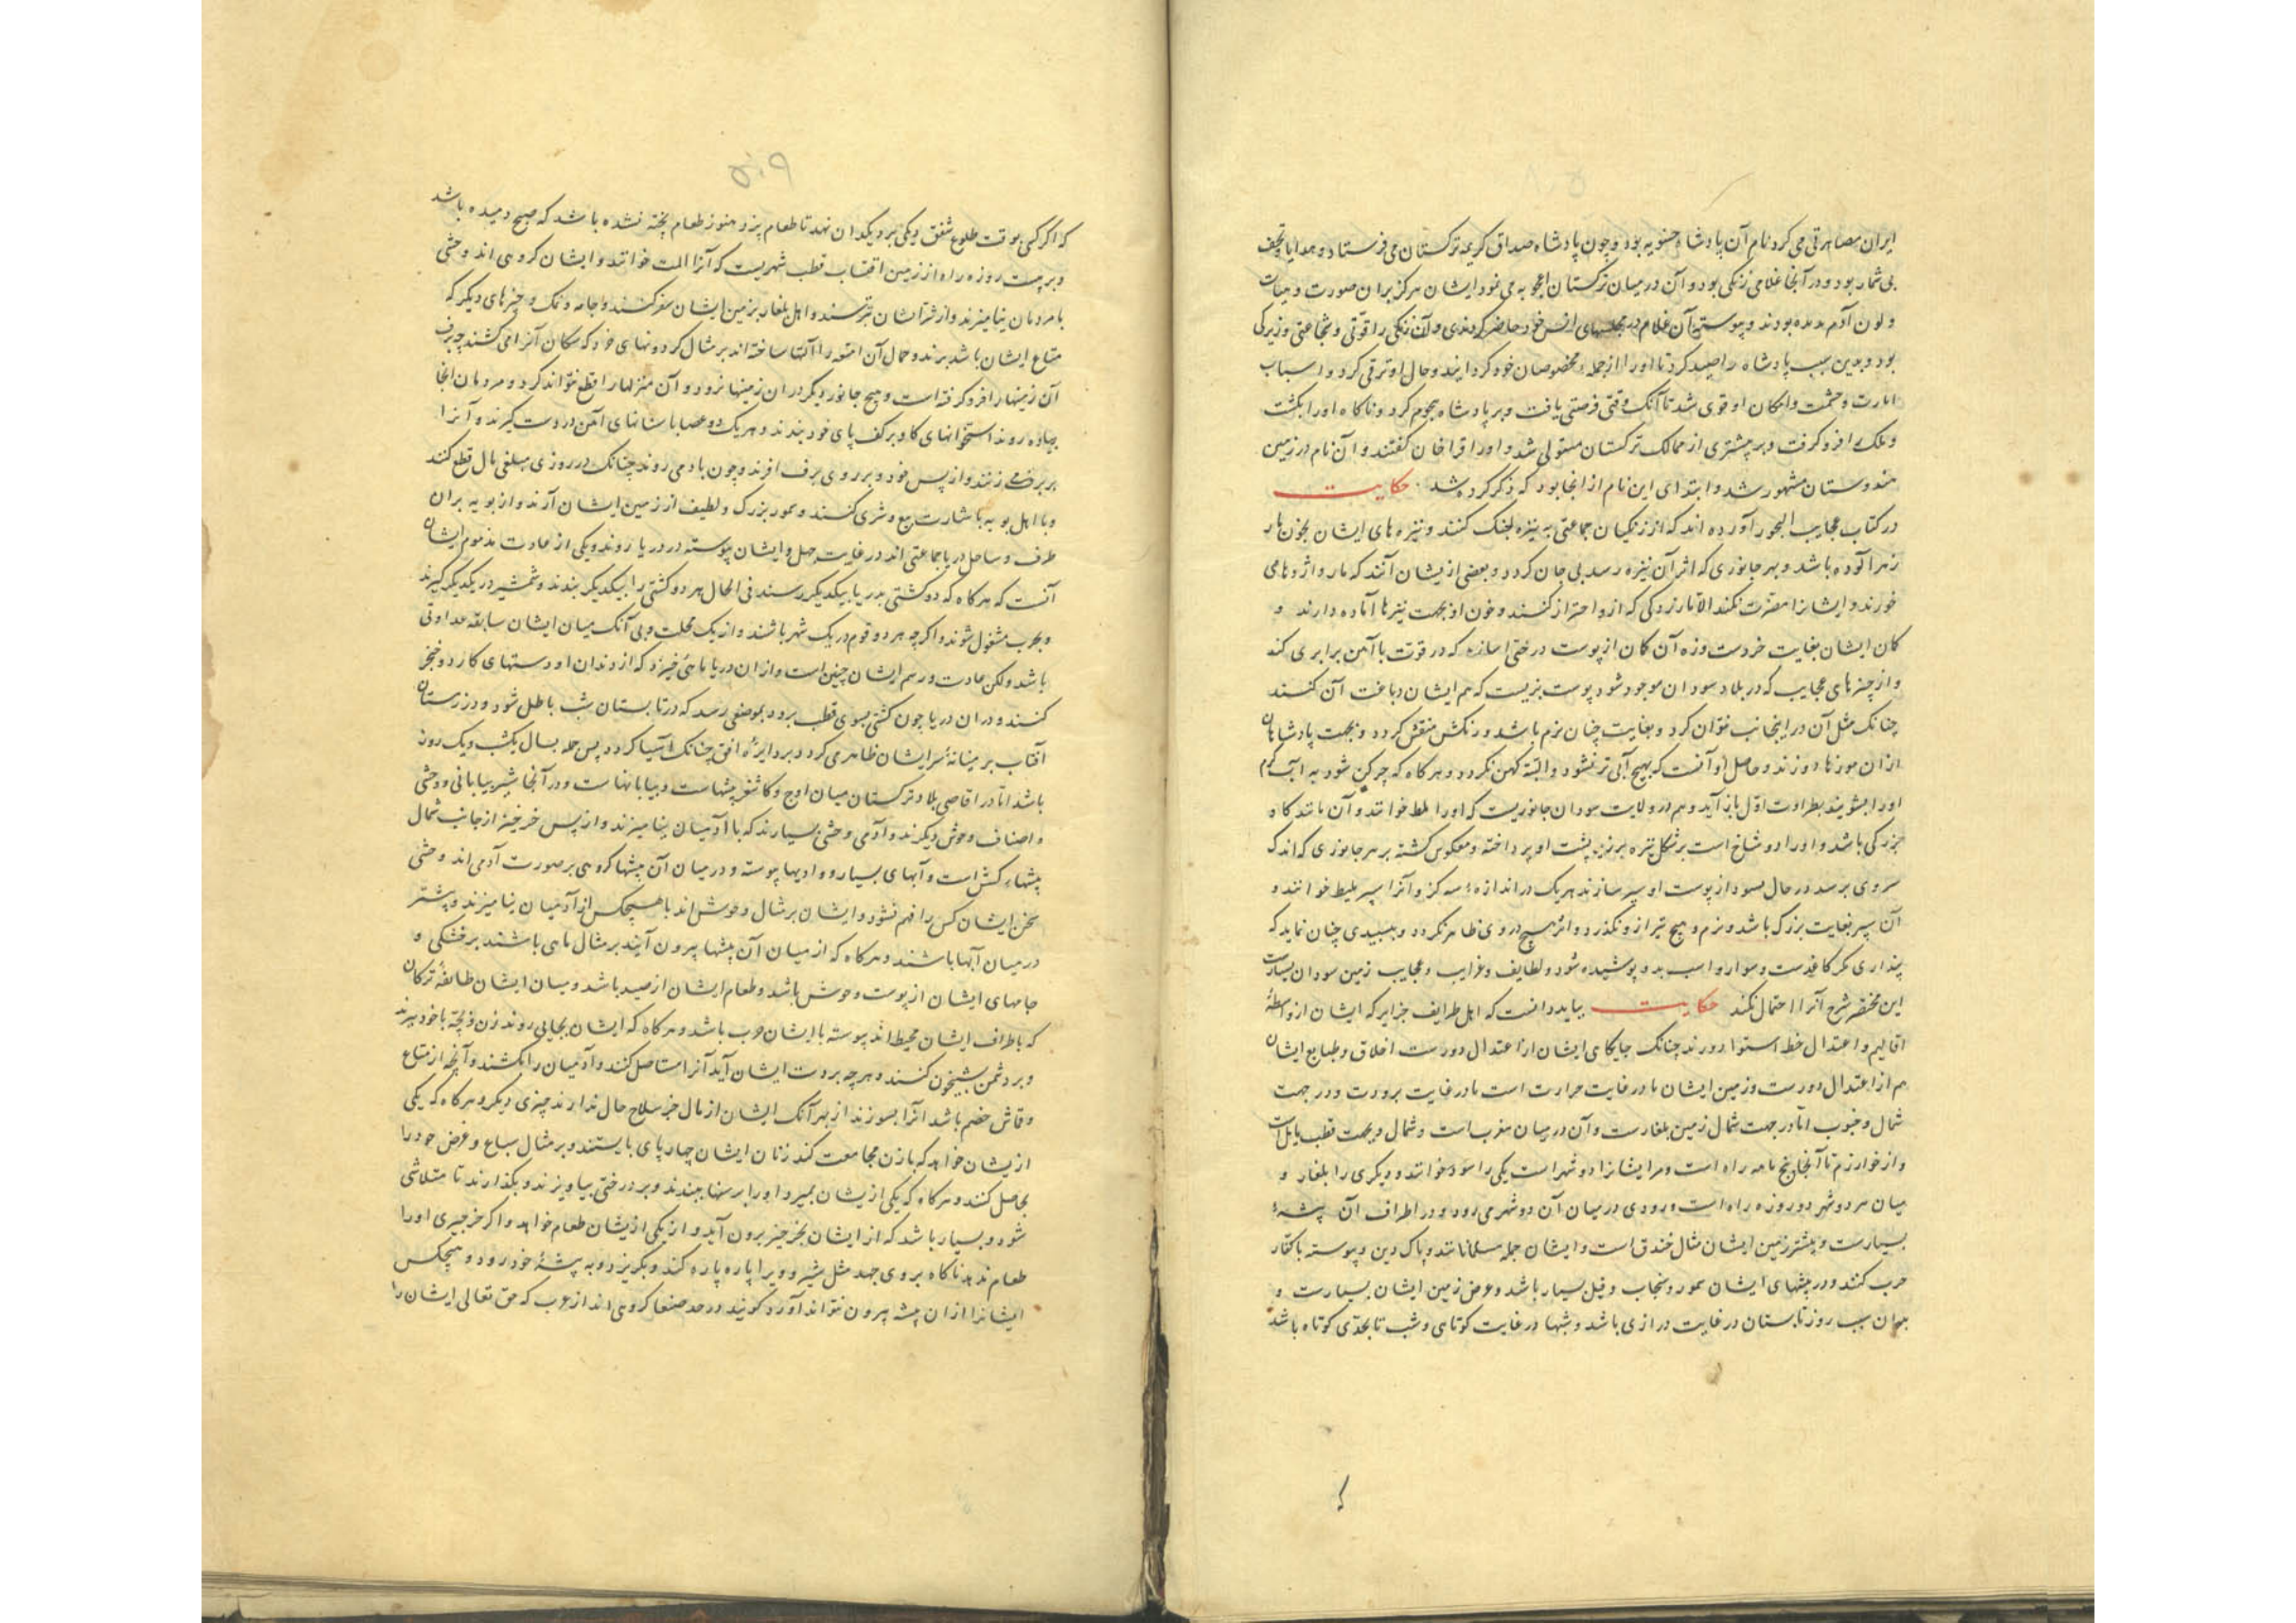 ایران مصاهرتی می کرد نام آن پادشاه حسنویه بود و چون پادشاه صداق کریمه ترکستان می فرستاد و هدایا و تحف
بی شمار بود و در آنجا غلامی زنگی بود و آن در میان ترکستان اعجوبه می نمود ایشان هرگز بران صورت و هیات
و لون آدم ندیده بودند و پیوسته آن غلام در مجلسهای انس خود حاضر کردندی و آن زنگی را قوتی و شجاعتی و زیرکی
بود و بدین سبب پادشاه را صید کرد تا او را از جمله مخصوصان خود گردانید و حال او ترقی کرد و اسباب
امارت و حشمت و امکان او قوی شد تا آنک وقتی فرصتی یافت و بر پادشاه هجوم کرد و ناکاه او را بکشت
و ملک او فرو گرفت و بر بیشتری از ممالک ترکستان مستولی شد و او را قراخان گفتند و آن نام در زمین
هندوستان مشهور شد و ابتدای این نام از انجا بود که ذکر کرده شد حکایت
در کتاب عجایب البحور آورده اند که از زنگیان جماعتی به نیزه جنگ کنند و نیزه های ایشان بخون مار
زهر آلوده باشد و بهر جانوری که اثر آن نیزه رسد بی جان گردد و بعضی از یشان آنند که مار و اژدها می
خورند و ایشانرا مضرت نکند الا مار بزرگی که ازو احتراز کنند و خون او بجهت نیزها آماده دارند و
کمان ایشان بغایت خردست وزه آن کمان از پوست درختی سازند که در قوت با آهن برابری کند
و از چیزهای عجایب که در بلاد سودان موجود شود پوست بزیست که هم ایشان دباغت آن کنند
چنانک مثل آن در اینجانب نتوان کرد و بغایت چنان نرم باشد و رنگش منقش گردد و بجهت پادشاهان
ازان موزها دوزند و حاصل او آنست که بهیچ آبی تر نشود و البته کهن نگردد و هرگاه که چرکن شود به آب گرم
او را بشویند بطراوت اول باز آید و هم در ولایت سودان جانوریست که او را لمط خوانند و آن مانند گاو
بزرگی باشد و او را دو شاخ است بر شکل نیزه بر زبر پشت او پرداخته و معکوس گشته بر هر جانوری که اندک
سروی برسد در حال بمیرد از پوست او سپر سازند هر یک در اندازه سه گز و آنرا سپر ملیط خوانند و
آن سپر بغایت بزرگ باشد و نرم و هیچ تیر ازو نگذرد و اثر هیچ در وی ظاهر نگردد و بسپیدی چنان نماید که
پنداری مگر کاغذست و سوار و اسب بدو پوشیده شود و لطایف و غرایب و عجایب زمین سودان بسیارست
این مختصر شرح آنرا احتمال نکند حکایت بباید دانست که اهل طرایف جزایر که ایشان از واسطهٔ
اقالیم و اعتدال خط استوا دورند چنانک جایگای ایشان از اعتدال دورست اخلاق و طبایع ایشان
هم از اعتدال دورست و زمین ایشان یا در غایت حرارت است یا در غایت برودت و در جهت
شمال و جنوب اما در جهت شمال زمین بلغارست و آن در میان مغرب است و شمال و بجهت قطب مایل است
و از خوارزم تا آنجا پنج ماهه راه است و مر ایشانرا دو شهر است یکی را سود خوانند و دیگری را بلغار و
میان هر دو شهر دو روزه راه است و رودی در میان آن دو شهر می رود و در اطراف آن بیشهٔ
بسیارست و بیشتر زمین ایشان مثال خندق است و ایشان جمله مسلمانانند و پاک دین و پیوسته با کفار
حرب کنند و در بیشهای ایشان سمور و سنجاب و فیل بسیار باشد و عرض زمین ایشان بسیارست و
بدان سبب روز تابستان در غایت درازی باشد و شبها در غایت کوتاهی و شب تا بحدی کوتاه باشد
۵۰۹
که اگر کسی بوقت طلوع شفق دیگی بر دیگدان نهد تا طعام پزد هنوز طعام پخته نشده باشد که صبح دمیده باشد
و بر بیست روزه راه از زمین اقتساب قطب شهریست که آنرا المت خوانند و ایشان گروهی اند وحشی
با مردمان نیامیزند و از شر ایشان بترسند و اهل بلغار بزمین ایشان سفر کنند و جامه و نمک و چیزهای دیگر که
متاع ایشان باشد برند و حمال آن امتعه را آلتها ساخته اند بر مثال گردونهای خرد که سگان آنرا می کشند چو برف
آن زمینها را فرو گرفته است و هیچ جانور دیگر در ان زمینها نرود و آن منزلها را قطع نتواند کرد و مردمان انجا
پیاده روند استخوانهای گاو بر کف پای خود بندند و هر یک دو عصا با سنانهای آهن در دست گیرند و آنرا
بر برف می زنند و از پس خود و بر روی برف افزند و چون باد می روند چنانک در روزی مبلغی مال قطع کنند
و با اهل یوبیه باشارت بیع و شری کنند و سمور بزرگ و لطیف از زمین ایشان آرند و از یوبیه بران
طرف و ساحل دریا جماعتی اند در غایت جهل و ایشان پیوسته در دریا روند و یکی از عادت مذموم ایشان
آنست که هرگاه که دو کشتی بدریا بیکدیگر رسند فی الحال هر دو کشتی را بیکدیگر بندند و شمشیر در یکدیگر گیرند
و بحرب مشغول شوند و اگرچه هر دو قوم در یک شهر باشند و از یک محلت و بی آنک میان ایشان سابقه عداوتی
باشد ولکن عادت و رسم ایشان چنین است و از ان دریا ماهیٔ خیزد که از دندان او دستهای کارد و خنجر
کنند و در ان دریا چون کشتی بسوی قطب برود بموضعی رسد که در تابستان شب باطل شود و در زمستان
آفتاب بر میانهٔ سر ایشان ظاهر می گردد بر دایرهٔ افق چنانک آسیا گردد پس جمله سال یک شب و یک روز
باشد اما در اقاصی بلاد ترکستان میان اوج و کاشغر بیشهاست و بیابانهاست و در آنجا شیر بیابانی و وحشی
و اصناف وحوش دیگرند و آدمی وحشی بسیارند که با آدمیان نیامیزند و از پس خرخیز از جانب شمال
بیشهاء کش است و آبهای بسیار و وادیها پیوسته و در میان آن بیشها گروهی بر صورت آدمی اند وحشی
سخن ایشان کس را فهم نشود و ایشان بر مثال وحوش اند با هیچکس از آدمیان نیامیزند و بیشتر
در میان آبها باشند و هرگاه که از میان آن بیشها بیرون آیند بر مثال ماهی باشند بر خشکی و
جامهای ایشان از پوست وحوش باشد و طعام ایشان از صید باشد و میان ایشان طائفهٔ ترکان
که باطراف ایشان محیط اند پیوسته با ایشان حرب باشد و هرگاه که ایشان بجایی روند زن و بچه با خود ببرند
و بر دشمن شبیخون کنند و هرچه بدست ایشان آید آنرا مستاصل کنند و آدمیان را بکشند و آنچه از متاع
و قماش خصم باشد آنرا بسوزند از بهر آنک ایشان از مال جز سلاح حال ندارند چیزی دیگر و هرگاه که یکی
از یشان خواهد که با زن مجامعت کند زنان ایشان چهار پای بایستند و بر مثال سباع و غرض خود را
حاصل کنند و هرگاه که یکی از یشان بمیرد او را برسنها ببندند و بر درختی بیاویزند و بگذارند تا متلاشی
شود و بسیار باشد که از ایشان بخرخیز برون آید و از یکی از یشان طعام خواهد و اگر خرخیزی او را
طعام ندهد ناگاه بروی جهد مثل شیر و ویرا پاره پاره کند و بگریزد و به بیشهٔ خود رود و هیچکس
ایشانرا از ان بیشه بیرون نتواند آورد گویند در حد صنعا گروهی اند از عرب که حق تعالی ایشان را